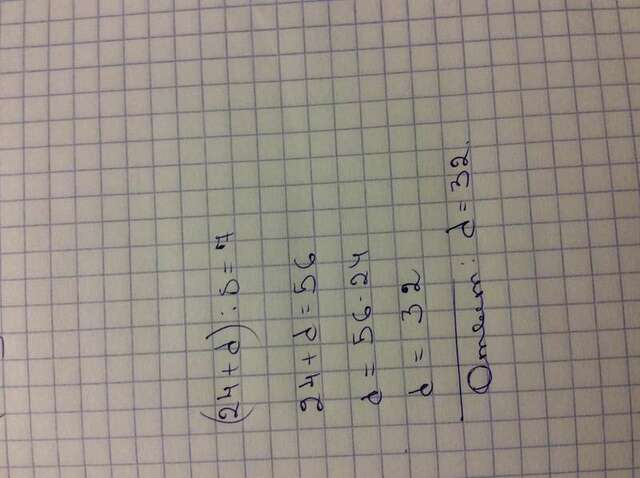 (24+d):8=7
24+d=56
d=56-24
d=32
Ответ: d=32.